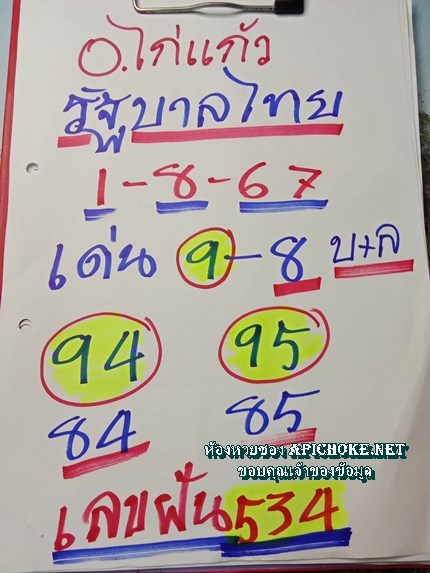 อ.ไก่แก้ว
รัฐบาลไทย
1-8-67
เด่น 9-8 บ+ล
94 95
84 85
ห้องหวยซอง APICHOKE.NET
ขอบคุณเจ้าของข้อมูล
เลขฝัน 534